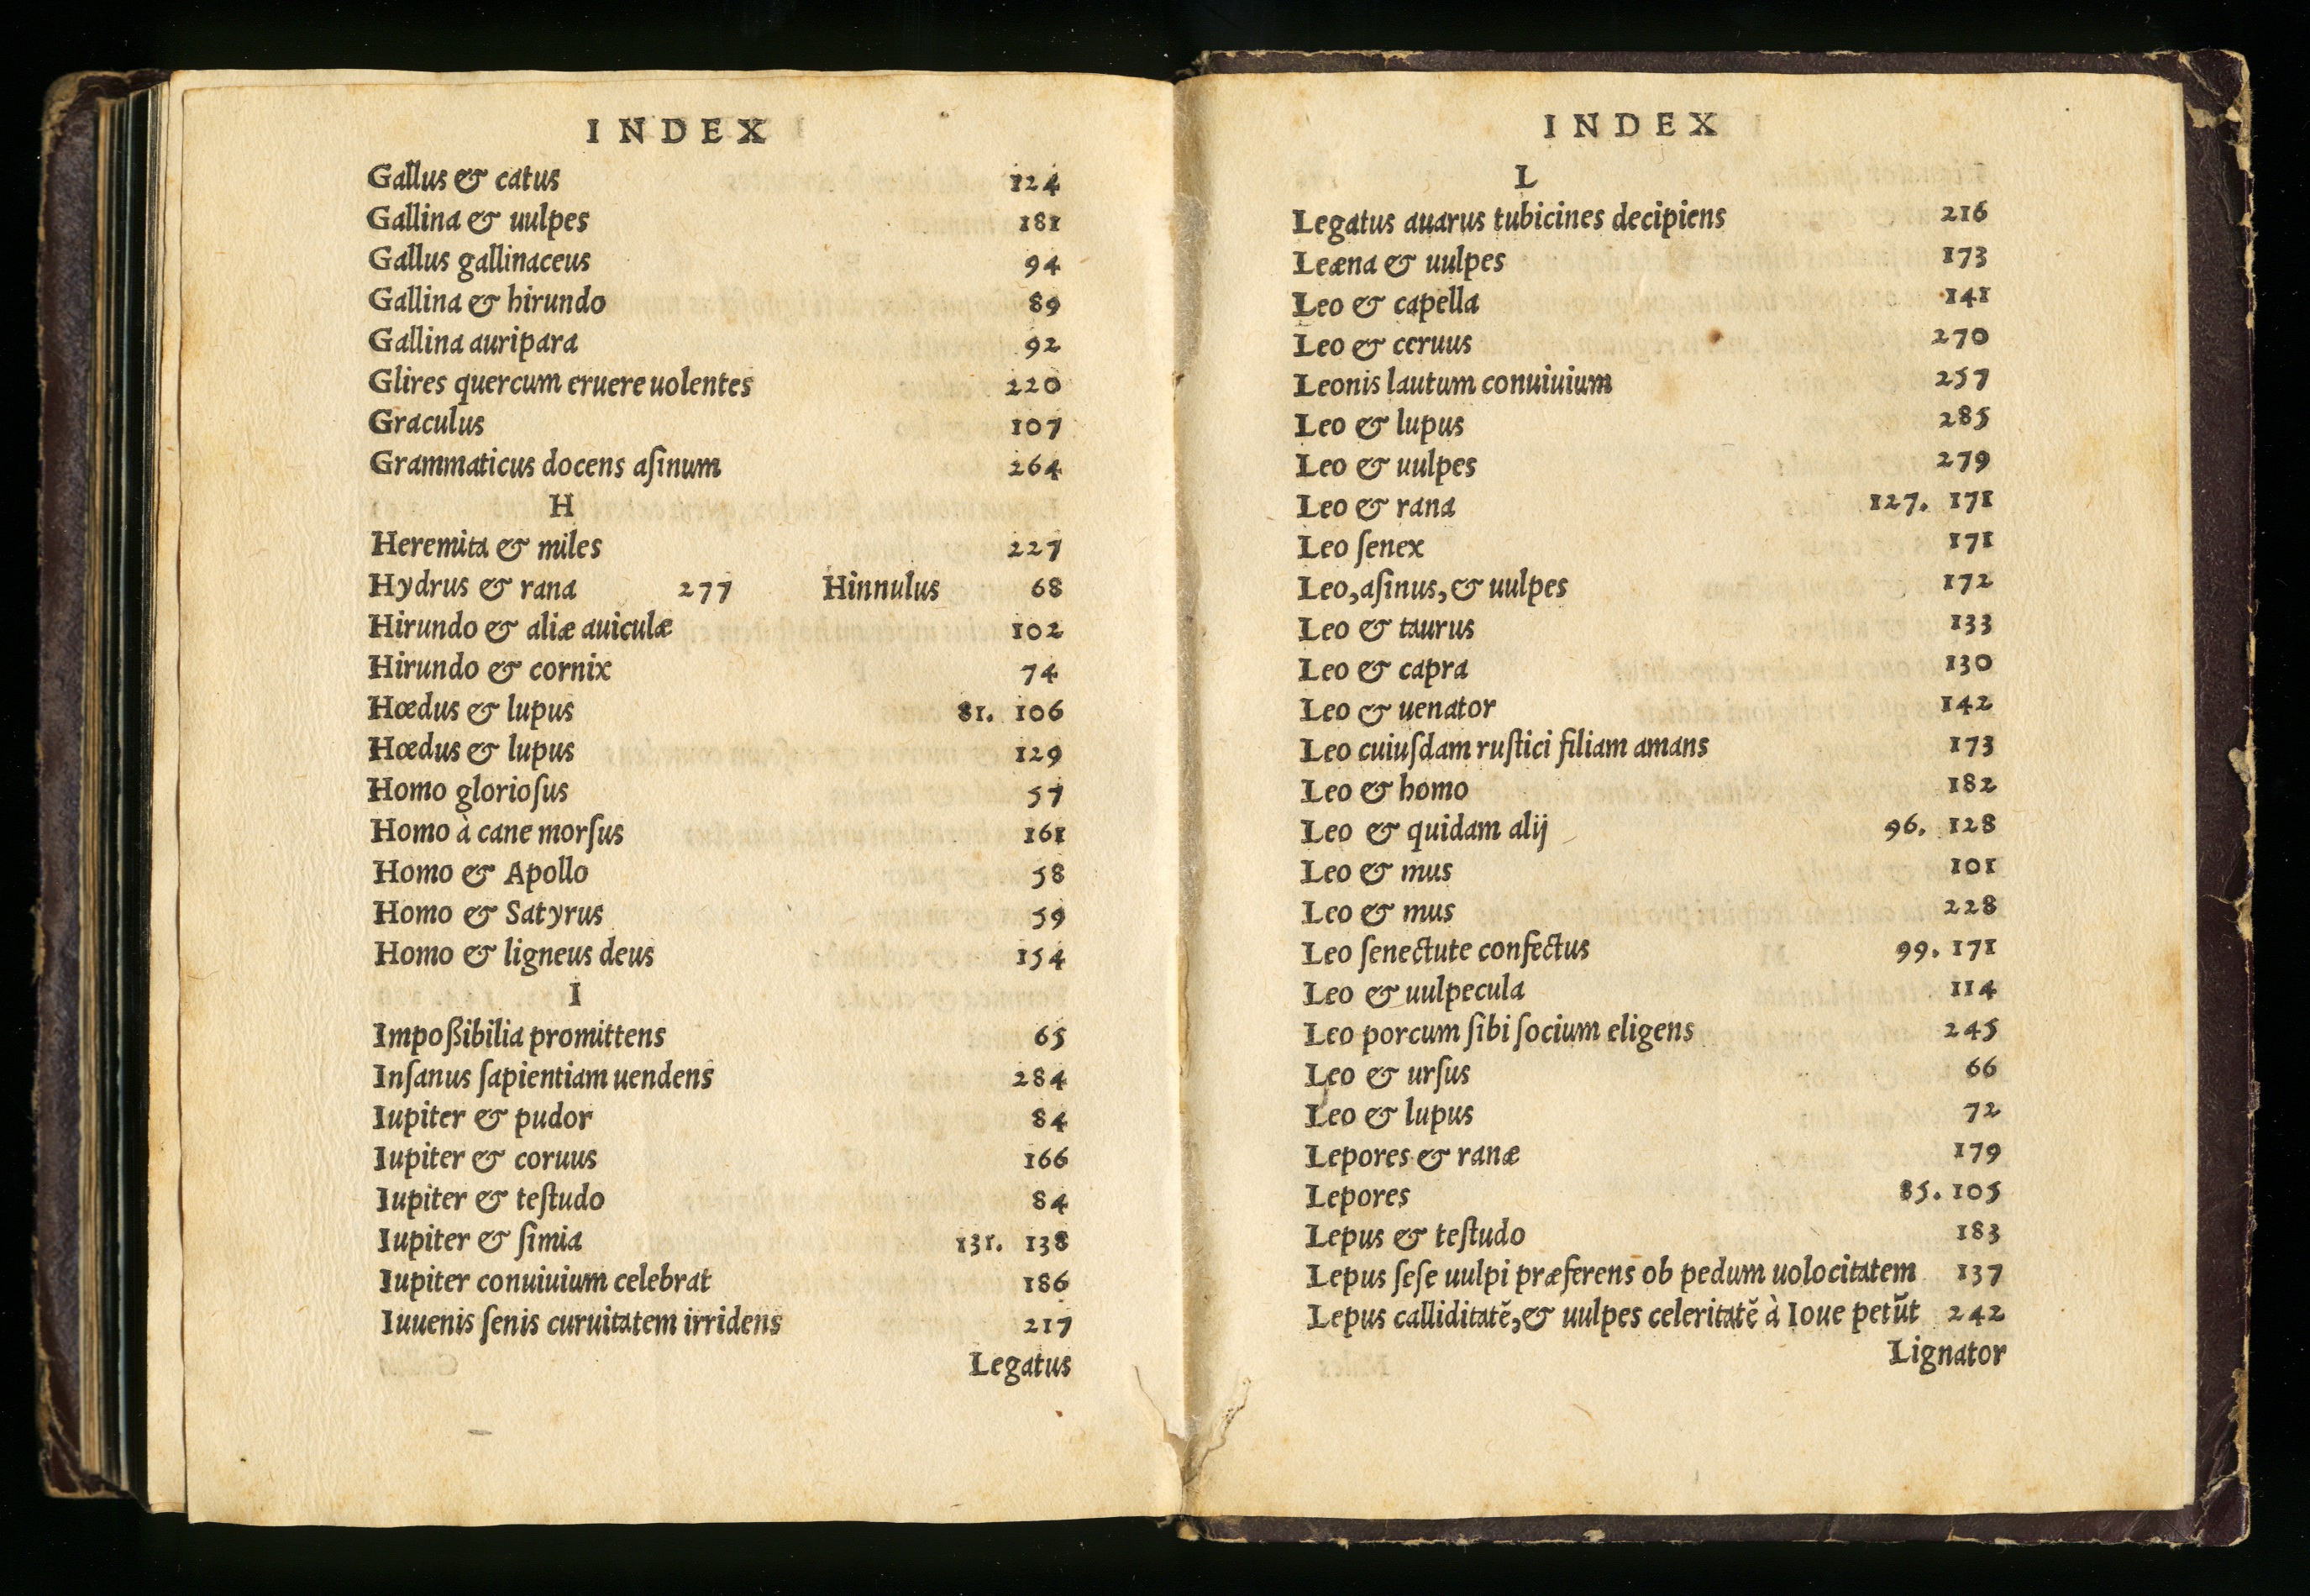 INDEX
Gallus & catus 124
Gallina & uulpes 181
Gallus gallinaceus 94
Gallina & hirundo 89
Gallina auripara 92
Glires quercum eruere uolentes 220
Graculus 107
Grammaticus docens aſinum 264
H
Heremita & miles 227
Hydrus & rana 277 Hinnulus 68
Hirundo & aliæ auiculæ 102
Hirundo & cornix 74
Hœdus & lupus 81. 106
Hœdus & lupus 129
Homo glorioſus 57
Homo à cane morſus 161
Homo & Apollo 58
Homo & Satyrus 59
Homo & ligneus deus 154
I
Impoßibilia promittens 65
Inſanus ſapientiam uendens 284
Iupiter & pudor 84
Iupiter & coruus 166
Iupiter & teſtudo 84
Iupiter & ſimia 131. 138
Iupiter conuiuium celebrat 186
Iuuenis ſenis curuitatem irridens 217
Legatus
INDEX
L
Legatus auarus tubicines decipiens 216
Leæna & uulpes 173
Leo & capella 141
Leo & ceruus 270
Leonis lautum conuiuium 257
Leo & lupus 285
Leo & uulpes 279
Leo & rana 127. 171
Leo ſenex 171
Leo, aſinus, & uulpes 172
Leo & taurus 133
Leo & capra 130
Leo & uenator 142
Leo cuiuſdam ruſtici filiam amans 173
Leo & homo 182
Leo & quidam alij 96. 128
Leo & mus 101
Leo & mus 228
Leo ſenectute confectus 99. 171
Leo & uulpecula 114
Leo porcum ſibi ſocium eligens 245
Leo & urſus 66
Leo & lupus 72
Lepores & ranæ 179
Lepores 85. 105
Lepus & teſtudo 183
Lepus ſeſe uulpi præferens ob pedum uolocitatem 137
Lepus calliditatē, & uulpes celeritatē à Ioue petūt 242
Lignator